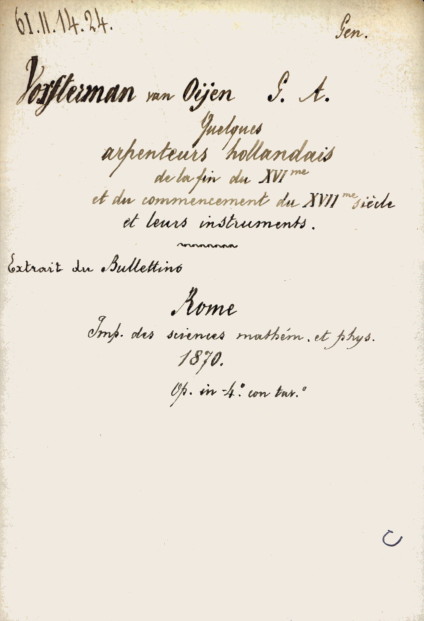 61.II.14.24.
Gen.
Vorsterman van Oijen G. A.
Quelques
arpenteurs hollandais
de la fin du XVIme
et du commencement du XVIIme siècle
et leurs instruments.
Extrait du Bullettino
Rome
Imp. des sciences mathém. et phys.
1870.
Op. in-4.° con tav.°
C